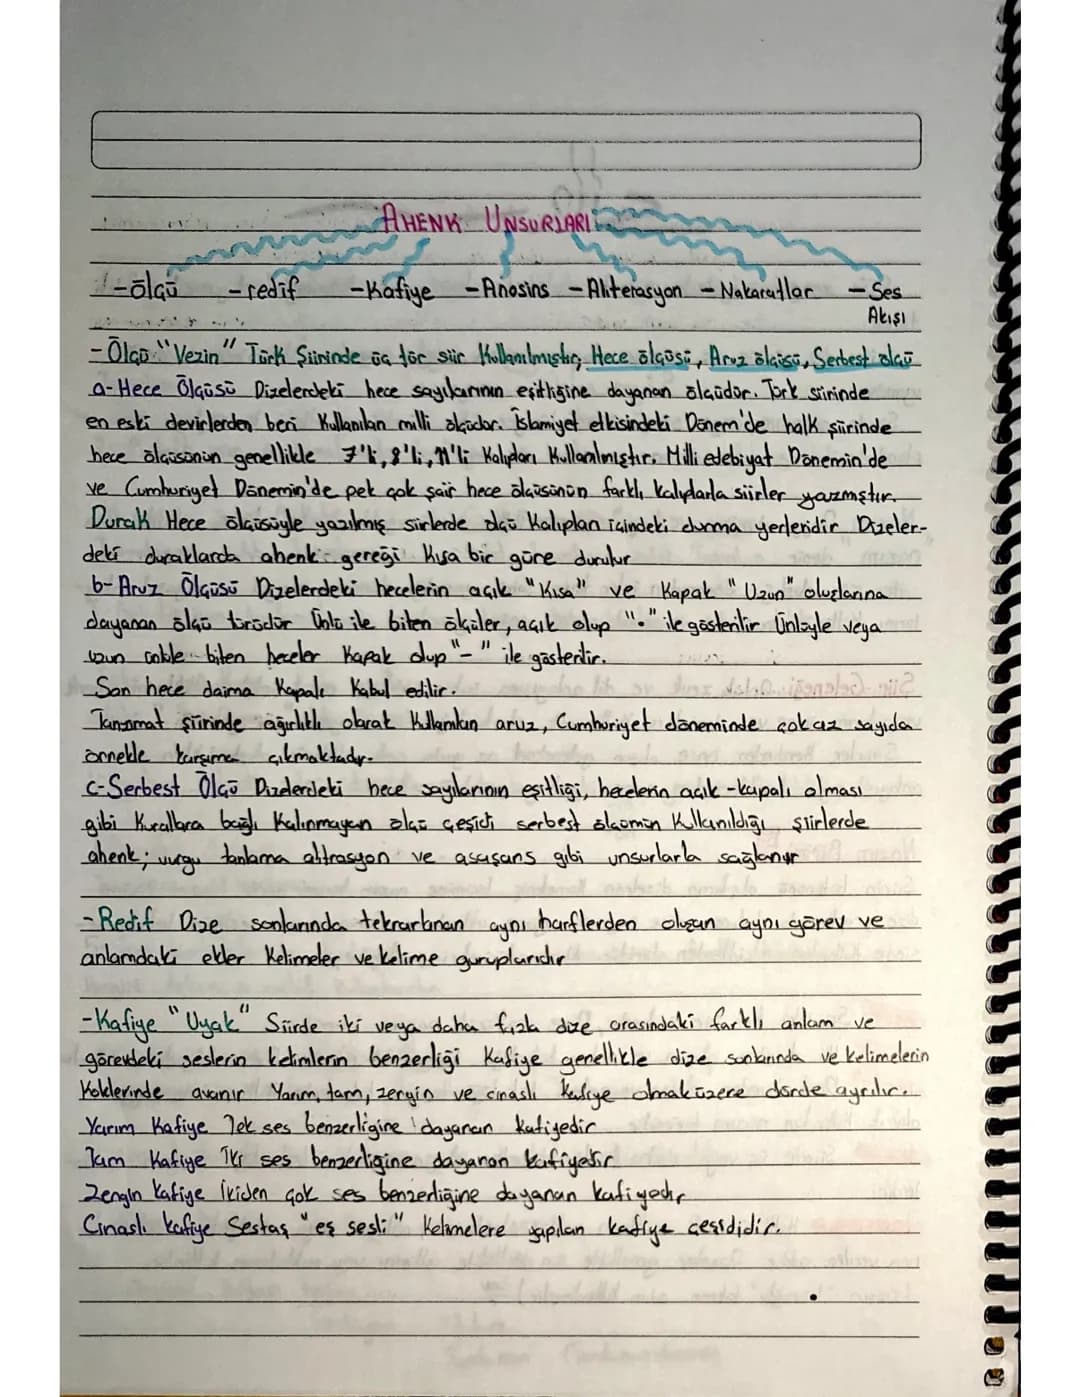 AHENK UNSURLARI
-ölçü -redif -Kafiye -Anosins -Aliterasyon -Nakaratlar -Ses
Akışı
-Ölçü "Vezin" Türk Şiirinde üç tür şiir Kullanılmıştır; Hece ölçüsü, Aruz ölçüsü, Serbest ölçü
a-Hece Ölçüsü Dizelerdeki hece sayılarının eşitliğine dayanan ölçüdür. Türk şiirinde
en eski devirlerden beri Kullanılan milli ölçüdür. İslamiyet etkisindeki Dönem'de halk şiirinde
hece ölçüsünün genellikle 7'li, 8'li, 11'li Kalıpları Kullanılmıştır. Milli edebiyat Dönemin'de
ve Cumhuriyet Dönemin'de pek çok şair hece ölçüsünün farklı kalıplarla şiirler yazmıştır.
Durak Hece ölçüsüyle yazılmış şiirlerde ölçü Kalıpları içindeki durma yerleridir Dizeler-
deki duraklarda ahenk gereği Kısa bir güre durulur
b-Aruz Ölçüsü Dizelerdeki hecelerin açık "Kısa" ve Kapak "Uzun" oluşlarına
dayanan ölçü türüdür Ünlü ile biten ölçüler, açık olup "." ile gösterilir Ünlüyle veya
uzun biten heceler Kapak olup "-" ile gösterilir.
Son hece daima Kapalı Kabul edilir.
Tanzimat şiirinde ağırlıklı olarak Kullanılan aruz, Cumhuriyet döneminde çok az sayıda
örnekle karşımıza çıkmaktadır.
c-Serbest Ölçü Dizelerdeki hece sayılarının eşitliği, hecelerin açık-kapalı olması
gibi Kurallara bağlı Kalınmayan ölçü çeşidi serbest ölçünün Kullanıldığı şiirlerde
ahenk; vurgu tonlama altrasyon ve asuşans gibi unsurlarla sağlanır
-Redif Dize sonlarında tekrarlanan aynı harflerden oluşan aynı görev ve
anlamdaki ekler Kelimeler ve kelime guruplarıdır
-Kafiye "Uyak" Şiirde iki veya daha fazla dize arasındaki farklı anlam ve
görevdeki seslerin kelimlerin benzerliği Kafiye genellikle dize sonlarında ve kelimelerin
Köklerinde aranır Yarım, tam, zengin ve cinaslı kafiye olmak üzere dörde ayrılır.
Yarım Kafiye Tek ses benzerliğine dayanan kafiyedir
Tam Kafiye İki ses benzerliğine dayanan kafiyedir
Zengin kafiye İkiden çok ses benzerliğine dayanan kafiyedir
Cinaslı kafiye Sesteş "eş sesli" Kelimelere yapılan kafiye çeşididir.